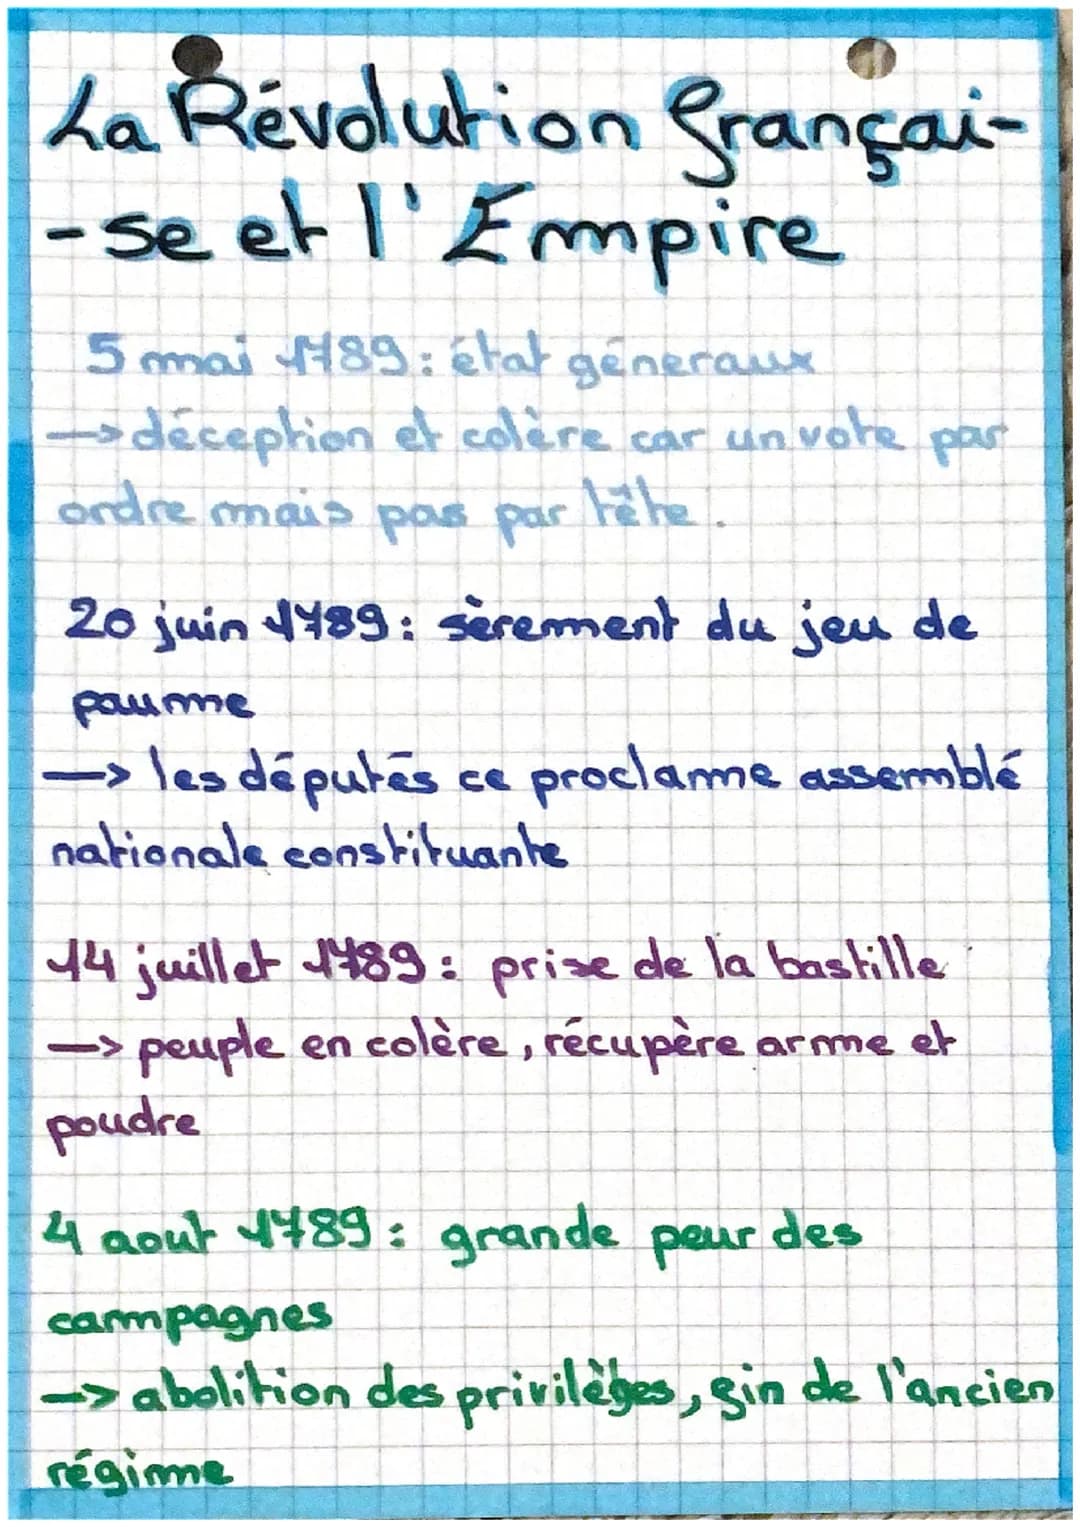 La Révolution françai-
-se et l'Empire
5 mai 1789: état géneraux
→ déception et colère car un vote par
ordre mais pas par tête.
20 juin 1789: sèrement du jeu de
paume
→ les députés ce proclame assemblé
nationale constituante
14 juillet 1789: prise de la bastille
→ peuple en colère, récupère arme et
poudre
4 aout 1789: grande peur des
campagnes
→ abolition des privilèges, fin de l'ancien
régime